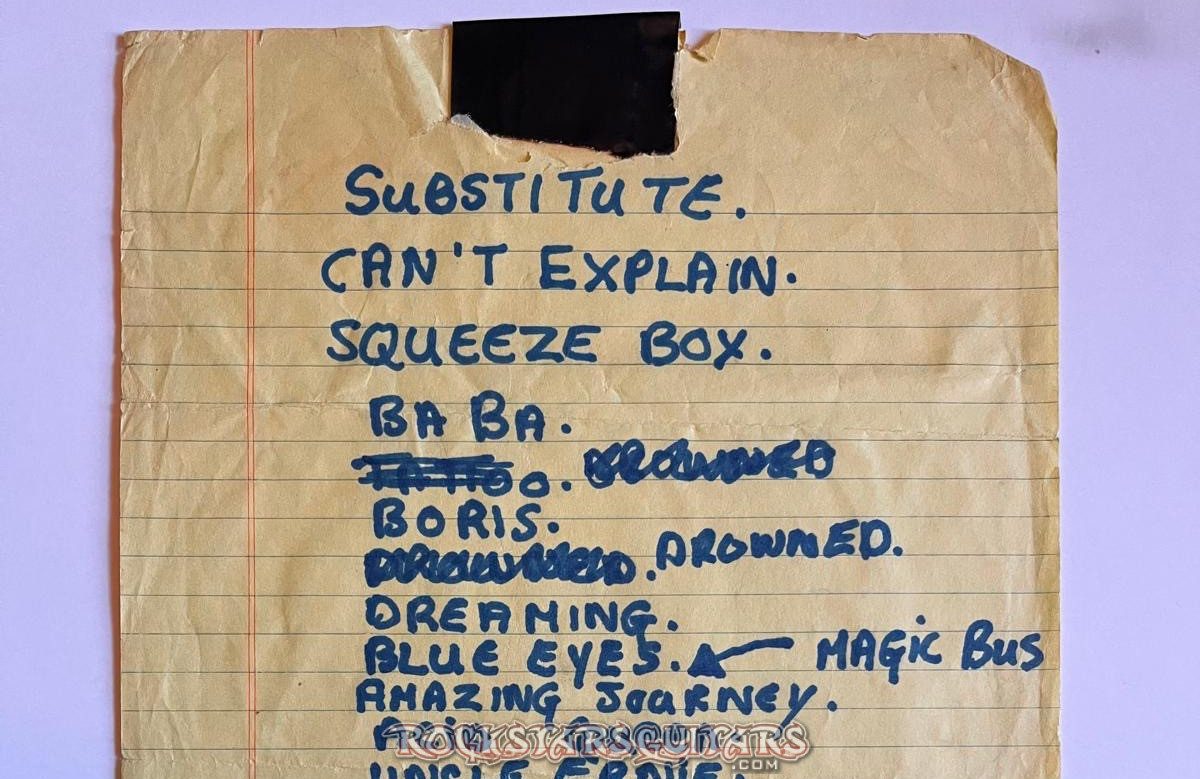 SUBSTITUTE.
CAN'T EXPLAIN.
SQUEEZE BOX.
BA BA.
TATTOO. DROWNED
BORIS.
DROWNED. DROWNED.
DREAMING.
BLUE EYES. MAGIC BUS
AMAZING JOURNEY.
ROCKSTARSGUITARS
.COM
UNCLE ERNIE.